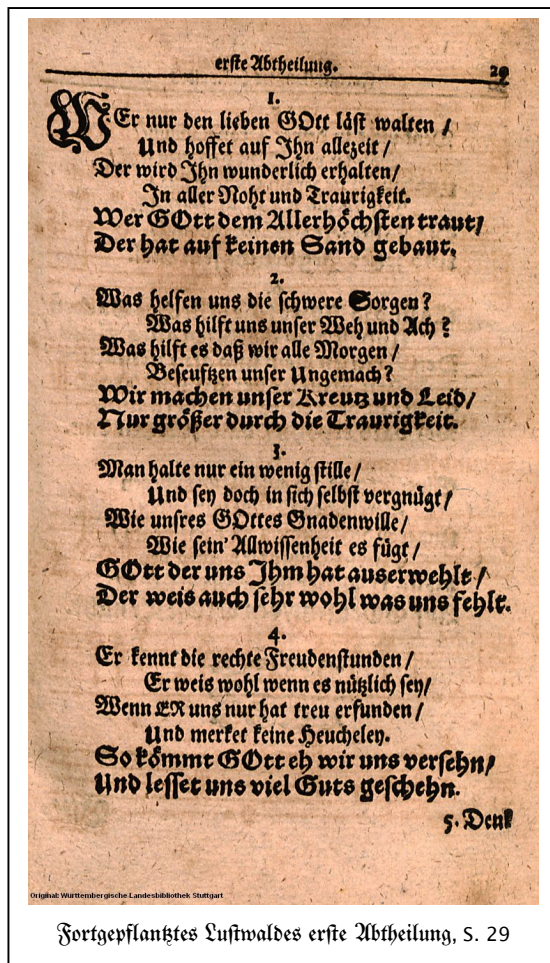 erste Abtheilung.
29
1.
WEr nur den lieben GOtt läst walten /
Und hoffet auf Jhn allezeit /
Der wird Jhn wunderlich erhalten/
Jn aller Noht und Traurigkeit.
Wer GOtt dem Allerhöchsten traut/
Der hat auf keinen Sand gebaut.
2.
Was helfen uns die schwere Sorgen?
Was hilft uns unser Weh und Ach?
Was hilft es daß wir alle Morgen /
Beseuftzen unser Ungemach?
Wir machen unser Kreutz und Leid/
Nur größer durch die Traurigkeit.
3.
Man halte nur ein wenig stille/
Und sey doch in sich selbst vergnügt/
Wie unsres GOttes Gnadenwille/
Wie sein' Allwissenheit es fügt/
GOtt der uns Jhm hat auserwehlt/
Der weis auch sehr wohl was uns fehlt.
4.
Er kennt die rechte Freudenstunden/
Er weis wohl wenn es nützlich sey/
Wenn ER uns nur hat treu erfunden/
Und merket keine Heucheley.
So kömmt GOtt eh wir uns versehn/
Und lesset uns viel Guts geschehn.
5. Denk
Original: Württembergische Landesbibliothek Stuttgart
Fortgepflantztes Lustwaldes erste Abtheilung, S. 29